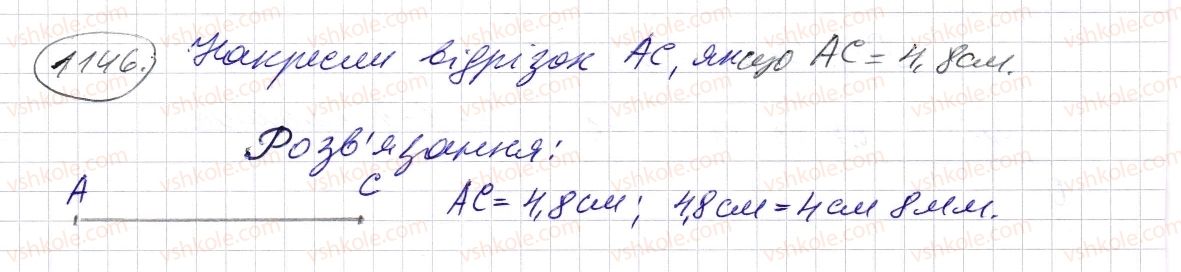 1146. Накресли відрізок AC, якщо AC = 4,8см.
Розв'язання:
A C AC = 4,8см; 4,8см = 4см 8мм.